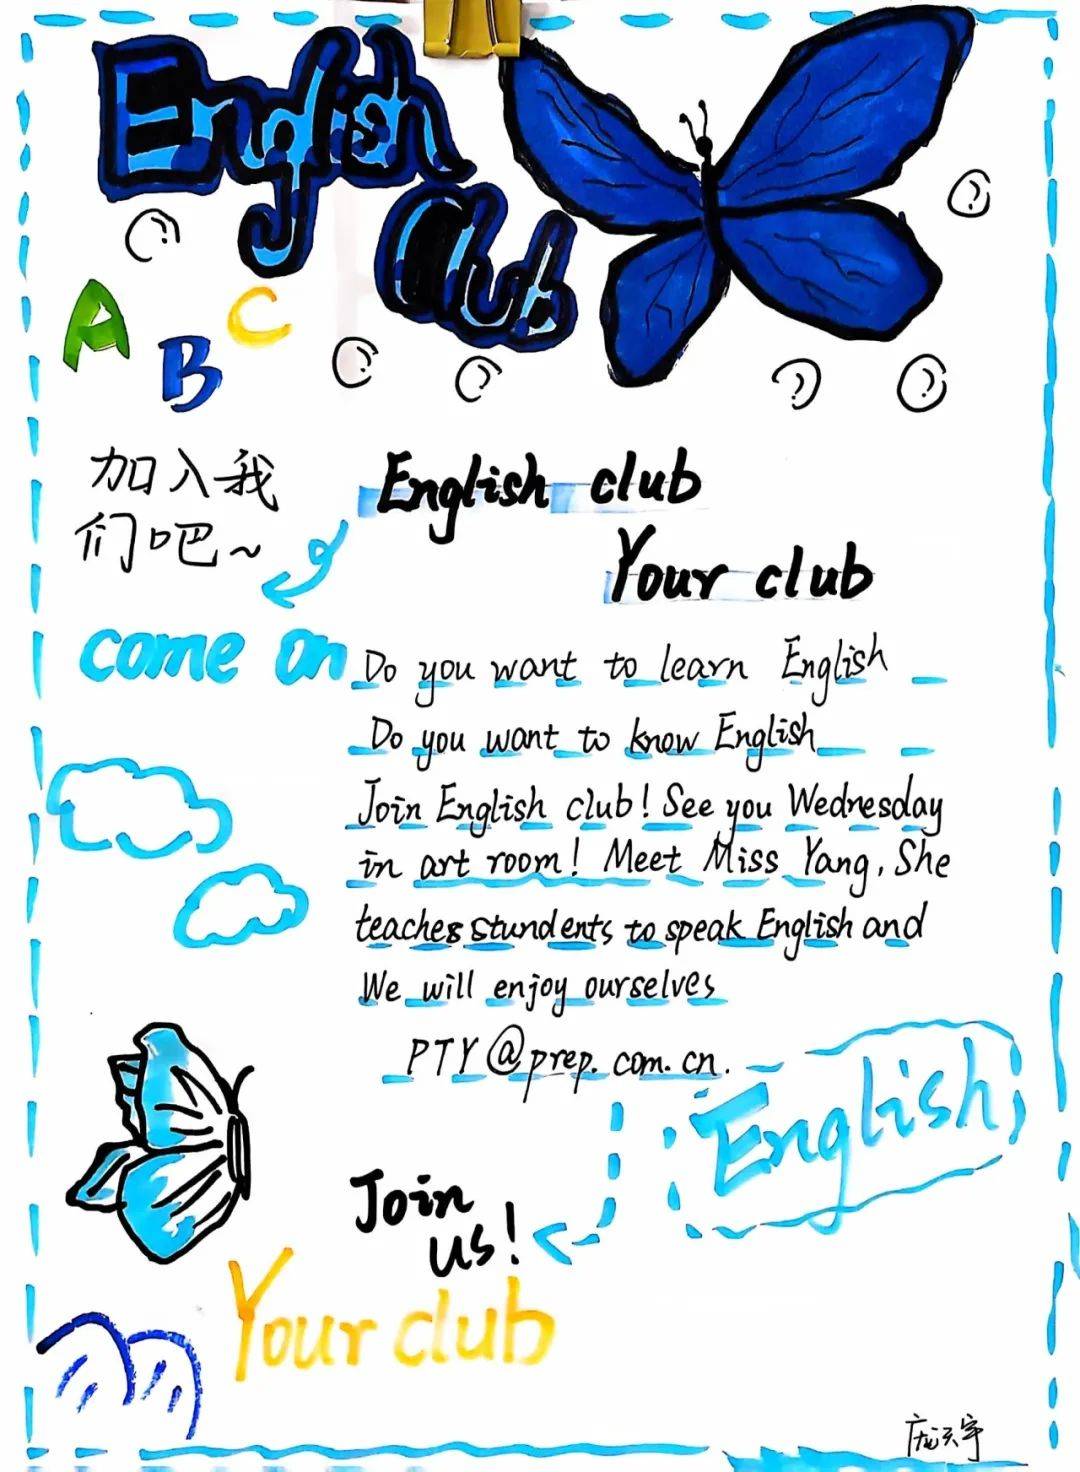 English
Club
A
B
C
加入我
们吧~
English club
Your club
come on
Do you want to learn English
Do you want to know English
Join English club! See you Wednesday
in art room! Meet Miss Yang, She
teaches stundents to speak English and
We will enjoy ourselves
PTY@prep.com.cn.
English
Join
us!
Your club
庞天宇